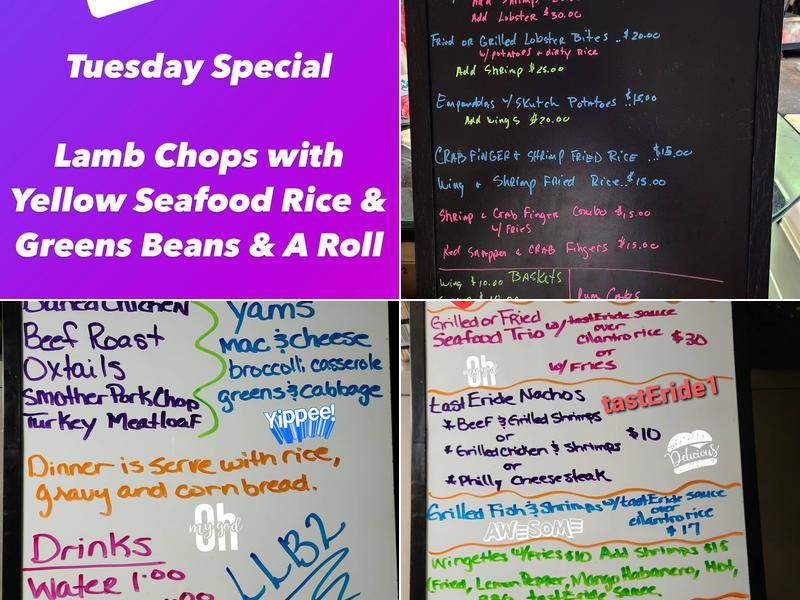 Tuesday Special
Lamb Chops with
Yellow Seafood Rice &
Greens Beans & A Roll
Add Lobster $30.00
Fried or Grilled Lobster Bites ..$20.00
w/potatoes + dirty Rice
Add Shrimp $25.00
Empanadas w/Skutch Potatoes ..$15.00
Add wings $20.00
CRAB FINGER & SHRIMP FRIED RICE ...$15.00
Wing & Shrimp Fried Rice..$15.00
Shrimp & Crab Finger Combo $15.00
w/ FRIES
Red Snapper & CRAB Fingers $15.00
Wing $10.00 BASKETS
Rum Cakes
Baked Chicken
Beef Roast
Oxtails
Smother Pork Chop
Turkey Meatloaf
Yams
mac & cheese
broccoli casserole
greens & cabbage
Yippee!
Dinner is serve with rice,
gravy and cornbread.
Oh
my god
Drinks
Water 1.00
LLB2
Grilled or Fried
Seafood Trio w/tastEride sauce
over
cilantro rice $30
or
w/ Fries
Oh
my god
tastEride Nachos
tastEride1
*Beef & Grilled Shrimps
or
*Grilled Chicken & Shrimps $10
or
*Philly Cheesesteak
Delicious
Grilled Fish & Shrimps w/tastEride sauce
over
cilantro rice
$17
AWESOME
Wingettes w/Fries $10 Add Shrimps $15
(Fried, Lemon Pepper, Mango Habanero, Hot,
BBQ, tastEride sauce